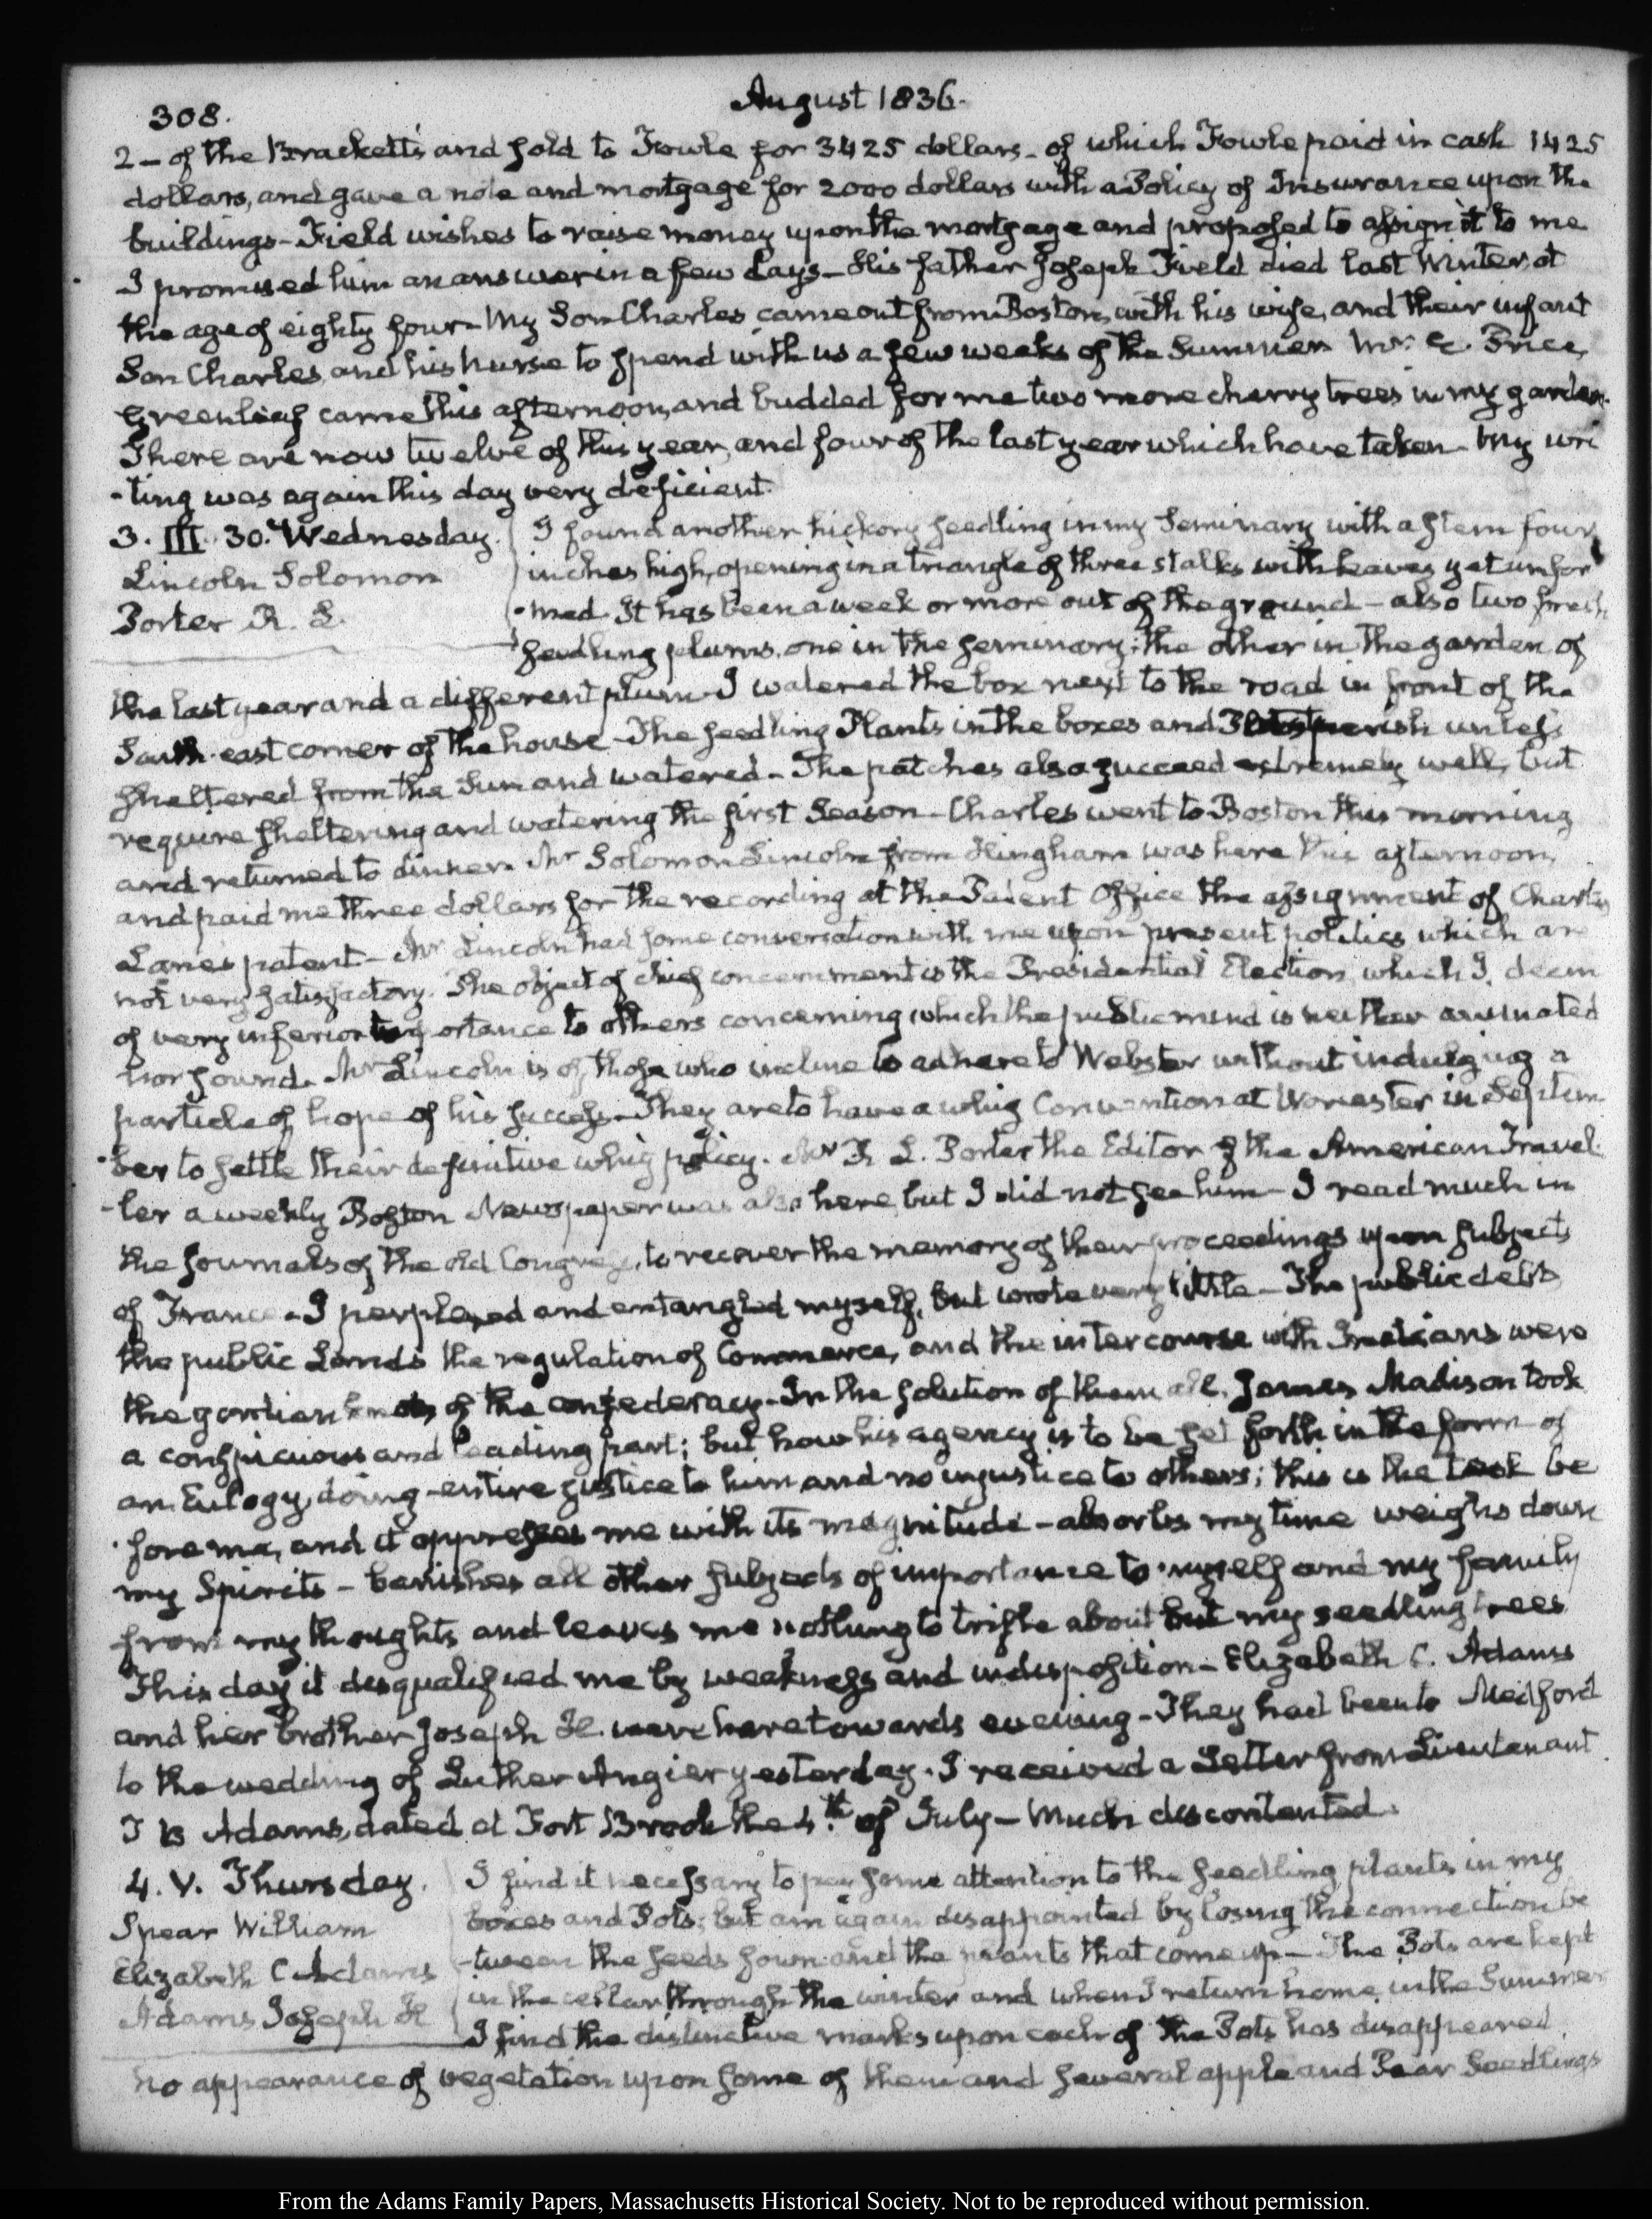 308.
August 1836.
2 - of the Brackett's and sold to Fowle for 3425 dollars - of which Fowle paid in cash 1425
dollars, and gave a note and mortgage for 2000 dollars with a Policy of Insurance upon the
buildings - Field wishes to raise money upon the mortgage and proposed to assign it to me
I promised him an answer in a few days - His father Joseph Field died last Winter at
the age of eighty four - My Son Charles came out from Boston, with his wife, and their infant
Son Charles, and his nurse to spend with us a few weeks of the Summer Mr. E. Price
Greenleaf came this afternoon, and budded for me two more cherry trees in my garden.
There are now twelve of this year, and four of the last year which have taken - My wri
-ting was again this day very deficient.
3. III. 30. Wednesday.
Lincoln Solomon
Porter R. L.
I found another hickory seedling in my Seminary with a stem four
inches high, opening in a triangle of three stalks with leaves yet unfor
-med. It has been a week or more out of the ground - also two fresh
seedling plums, one in the seminary; the other in the garden of
the last year and a different plum. I watered the box next to the road in front of the
South-east corner of the house - The seedling Plants in the boxes and Pots perish unless
sheltered from the Sun and watered - The patches also succeed extremely well, but
require sheltering and watering the first Season - Charles went to Boston this morning
and returned to dinner. Mr Solomon Lincoln from Hingham was here this afternoon,
and paid me three dollars for the recording at the Patent Office the assignment of Charles
Lane's patent - Mr Lincoln had some conversation with me upon present politics which are
not very satisfactory. The object of chief concernment is the Presidential Election, which I deem
of very inferior importance to others concerning which the public mind is neither animated
nor sound. Mr Lincoln is of those who incline to adhere to Webster without indulging a
particle of hope of his success - They are to have a whig Convention at Worcester in Septem
-ber to settle their definitive whig policy. Mr R. L. Porter the Editor of the American Travel
-ler a weekly Boston Newspaper was also here, but I did not see him - I read much in
the Journals of the old Congress, to recover the memory of their proceedings upon subjects
of France - I perplexed and entangled myself, but wrote very little - The public debts
the public Lands the regulation of Commerce, and the intercourse with Indians were
the gordian knots of the confederacy - In the solution of them all, James Madison took
a conspicuous and leading part; but how his agency is to be set forth in the form of
an Eulogy, doing entire justice to him and no injustice to others; this is the task be
-fore me, and it oppresses me with its magnitude - absorbs my time weighs down
my Spirits - banishes all other subjects of importance to myself and my family
from my thoughts and leaves me nothing to trifle about but my seedling trees
This day it disqualified me by weakness and indisposition - Elizabeth C. Adams
and her brother Joseph H. were here towards evening - They had been to Medford
to the wedding of Luther Angier yesterday. I received a Letter from Lieutenant
I B Adams, dated at Fort Brook the 4.th of July - Much discontented.
4. V. Thursday.
Spear William
Elizabeth C Adams
Adams Joseph H
I find it necessary to pay some attention to the seedling plants in my
boxes and Pots; but am again disappointed by losing the connection be
-tween the seeds sown and the plants that come up - The Pots are kept
in the cellar through the winter and when I return home in the Summer
I find the distinctive marks upon each of the Pots has disappeared
no appearance of vegetation upon some of them and several apple and Pear Seedlings
From the Adams Family Papers, Massachusetts Historical Society. Not to be reproduced without permission.